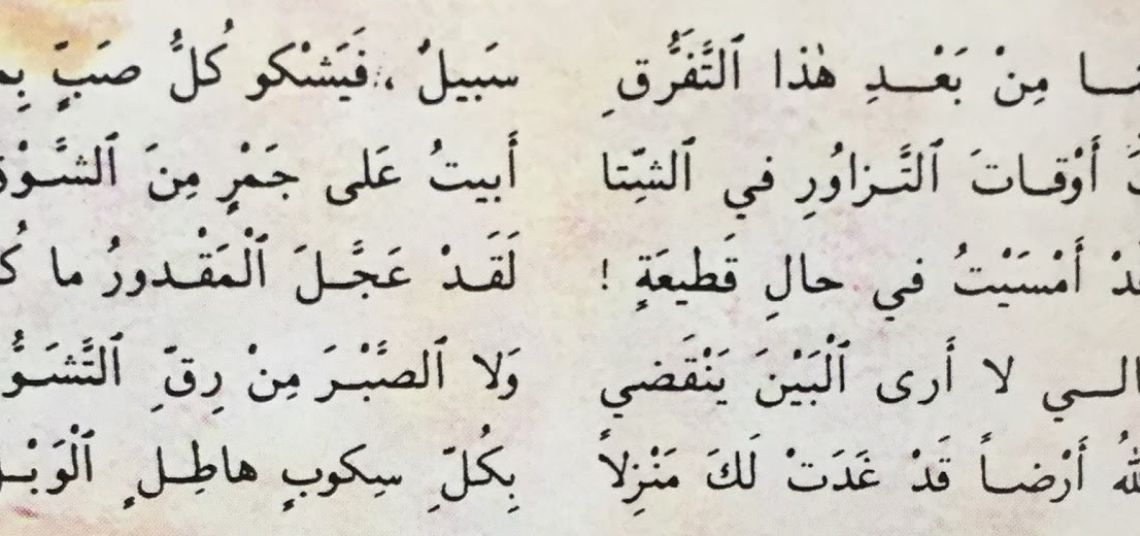 مِنْ بَعْدِ هٰذا ٱلتَّفَرُّقِ سَبيلٌ ، فَيَشْكو كُلُّ صَبٍّ
أَوْقاتَ ٱلتَّزاوُرِ في ٱلشِّتا أَبيتُ عَلى جَمْرٍ مِنَ
أَمْسَيْتُ في حالِ قَطيعَةٍ ! لَقَدْ عَجَّلَ ٱلْمَقْدورُ ما
لا أَرى ٱلْبَيْنَ يَنْقَضي وَلا ٱلصَّبْرَ مِنْ رِقِّ
أَرْضاً قَدْ غَدَتْ لَكَ مَنْزِلاً بِكُلِّ سِكوبٍ هاطِلٍ